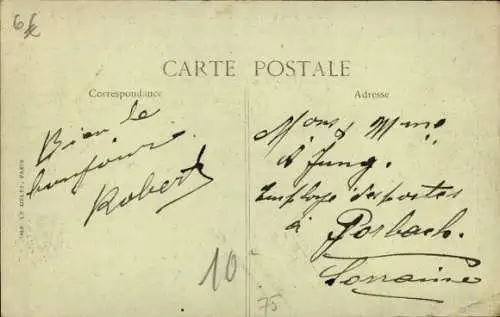 6€
CARTE POSTALE
Correspondance
Adresse
Bien le
bonjour
Robert
Mons & Mme
A Jung.
Employé des postes
à Forbach.
Lorraine
10
75